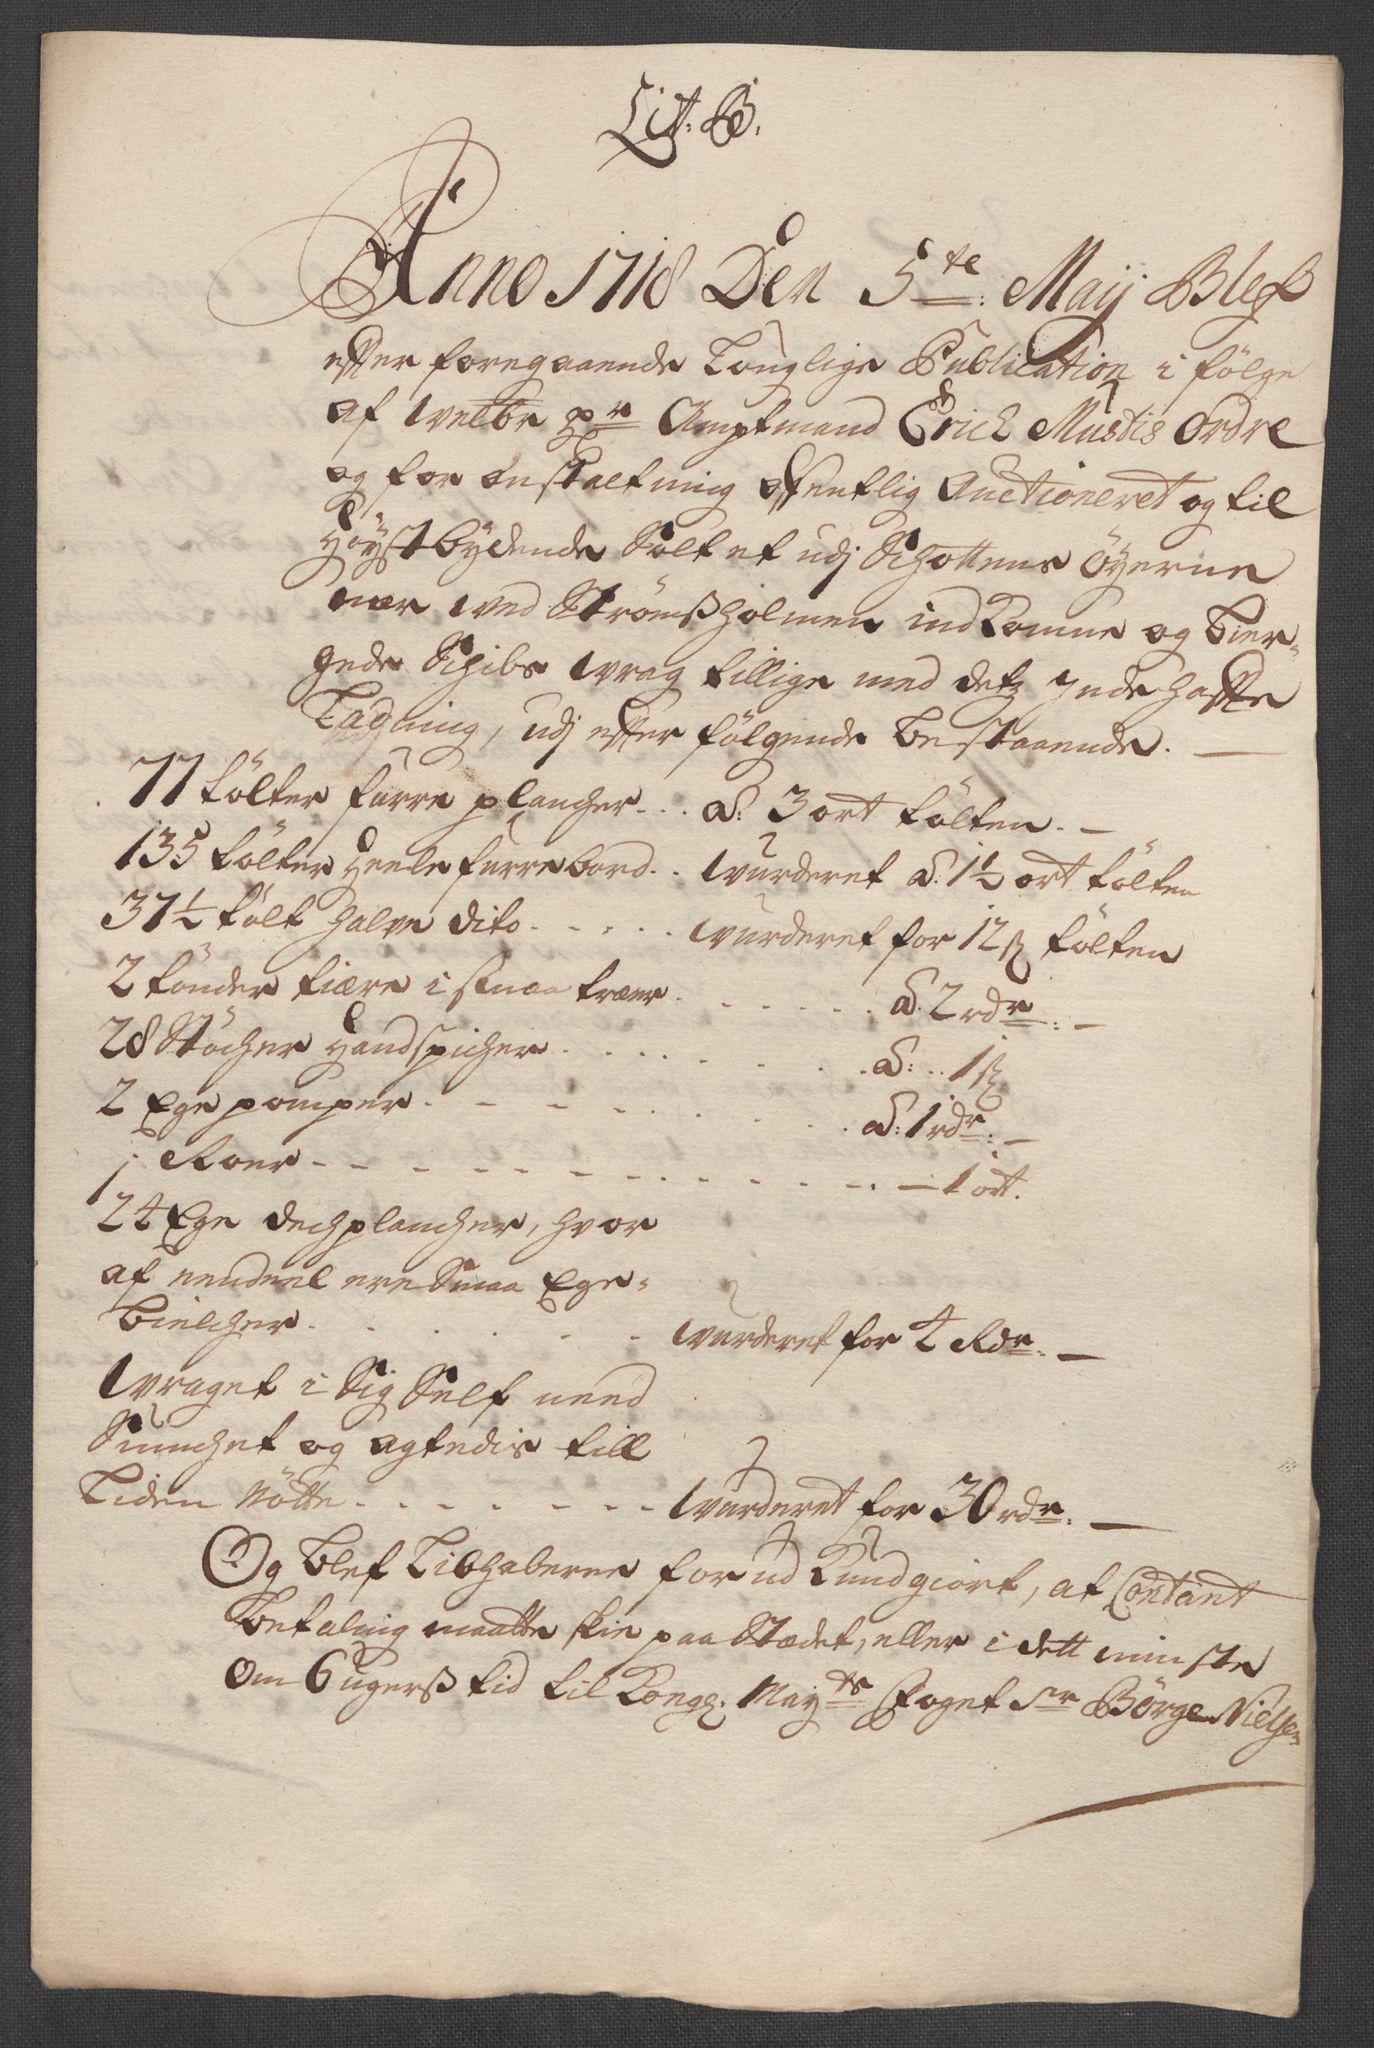 Lit: B.
Anno 1718 Den 5te: Maij Blef
efter foregaaende Louglige Publication i følge
af Welbr Hr Amptmand Erich Mustis Ordre
og for anstaltning offentlig Auctioneret og til
Høyst bydende Solt et udj Schottens Øyerne
nær wed Strømsholmen ind komne og bier-
gede Schibs wrag tillige med detz Inde hafte
Ladning, udj efter følgende bestaaende. —
77 tølter furre plancher... a: 3 ort tølten. —
135 tølter Heele furre bord.. wurderet a: 1½ ort tølten
37½ tølt halve dito..... wurderet for 12 ß tølten
2 tønder tiære i smaa træer....... a: 2 rdr: —
28 Støcher Handspicher........ a: .. 1 ß
2 Ege pomper......... a: 1 rdr: —
1 Roer............ — 1 ort.
24 Ege dechplancher, hvor
af eendeel ere Smaa Ege-
bielcher...... wurderet for 4 Rdr. —
Wraget i Sig Self need
Sunchet og agtedis till
liden Nøtte....... wurderet for 30 rdr. —
Og blef Libhaberne forud kundgiort, at Contant
betaling maatte skie paa Stædet, eller i dett minste
om 6 ugerß tid til Kongl: Mayts Foget Sr Børge Nielsen